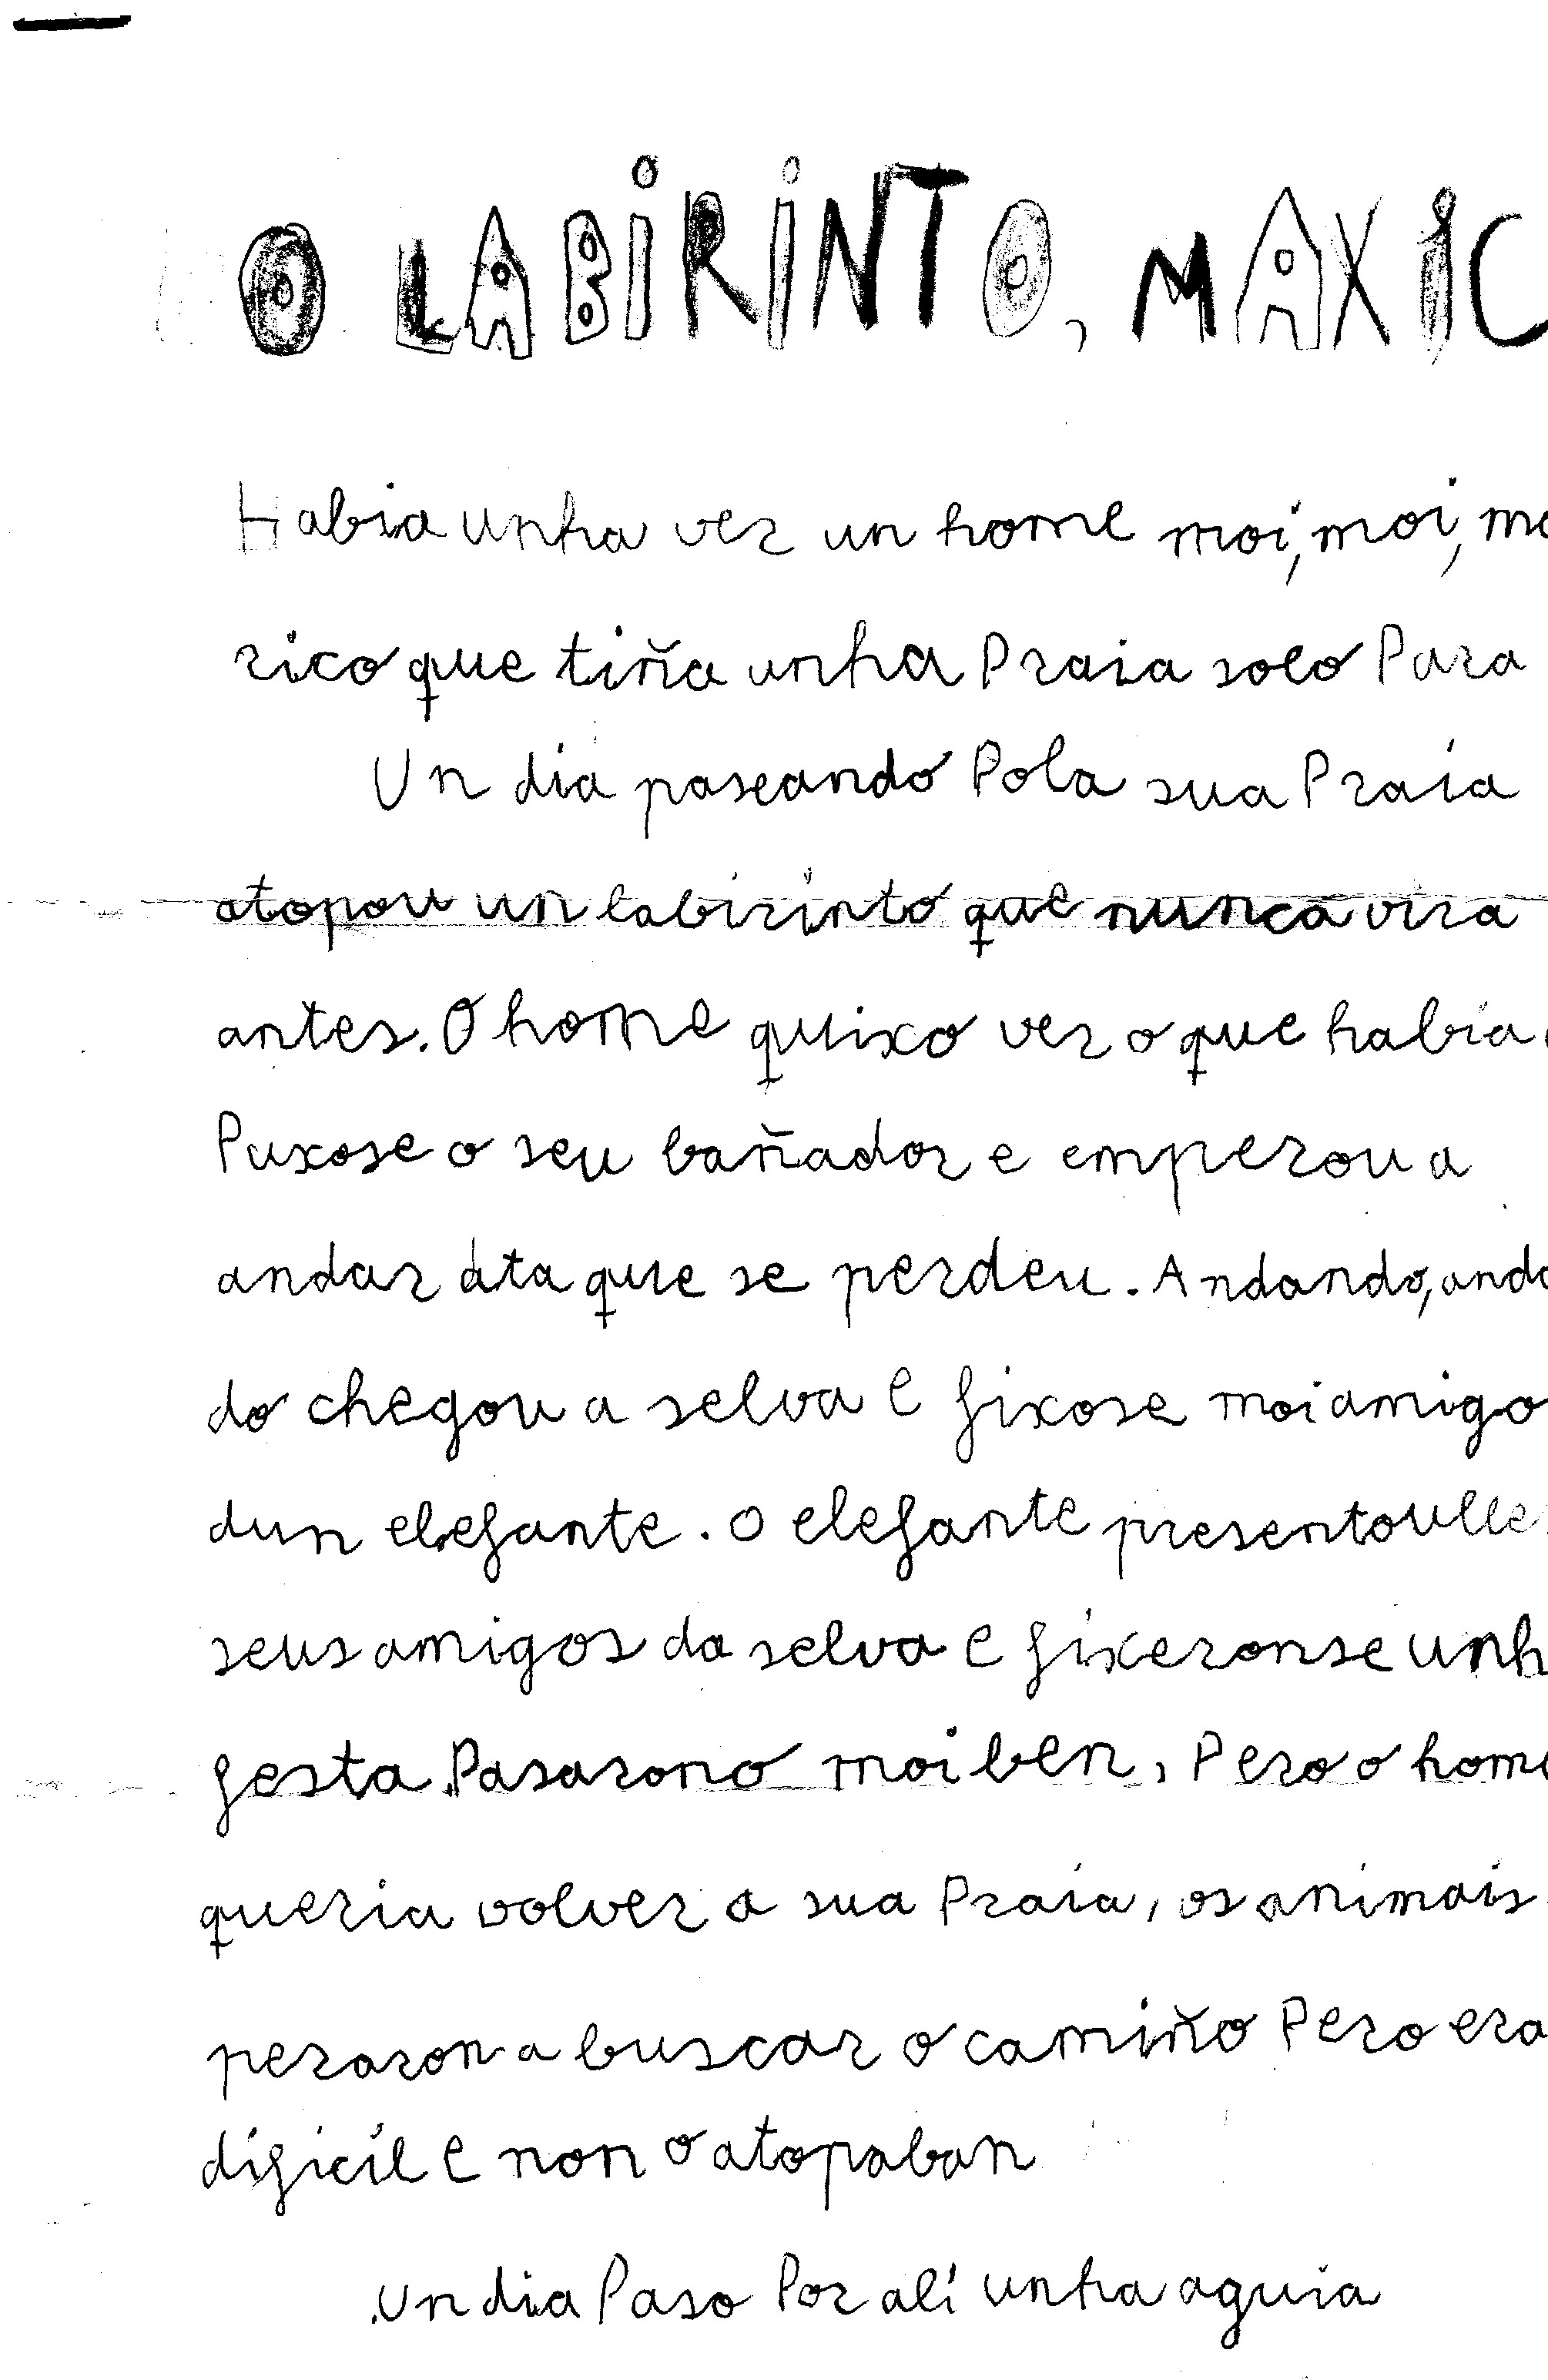 O LABIRINTO, MAXIC
Habia unha vez un home moi, moi, mo
rico que tiña unha Praia solo Para
Un dia paseando Pola sua Praia
atopou un labirinto que nunca vira
antes. O home quixo ver o que habia
Puxose o seu bañador e empezou a
andar ata que se perdeu. Andando, anda
do chegou a selva e fixose moi amigo
dun elefante. O elefante presentoulle
seus amigos da selva e fixeronse unh
festa. Pasarono moi ben, Pero o home
queria volver a sua Praia, os animais
pezaron a buscar o camiño Pero era
dificil e non o atopaban
Un dia Paso Por alí unha aguia